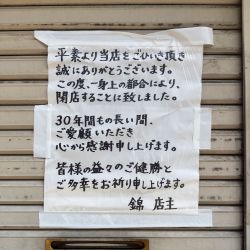 平素より当店をごひいき頂き
誠にありがとうございます。
この度、一身上の都合により、
閉店することに致しました。
30年間もの長い間、
ご愛顧いただき
心から感謝申し上げます。
皆様の益々のご健勝と
ご多幸をお祈り申し上げます。
錦 店主